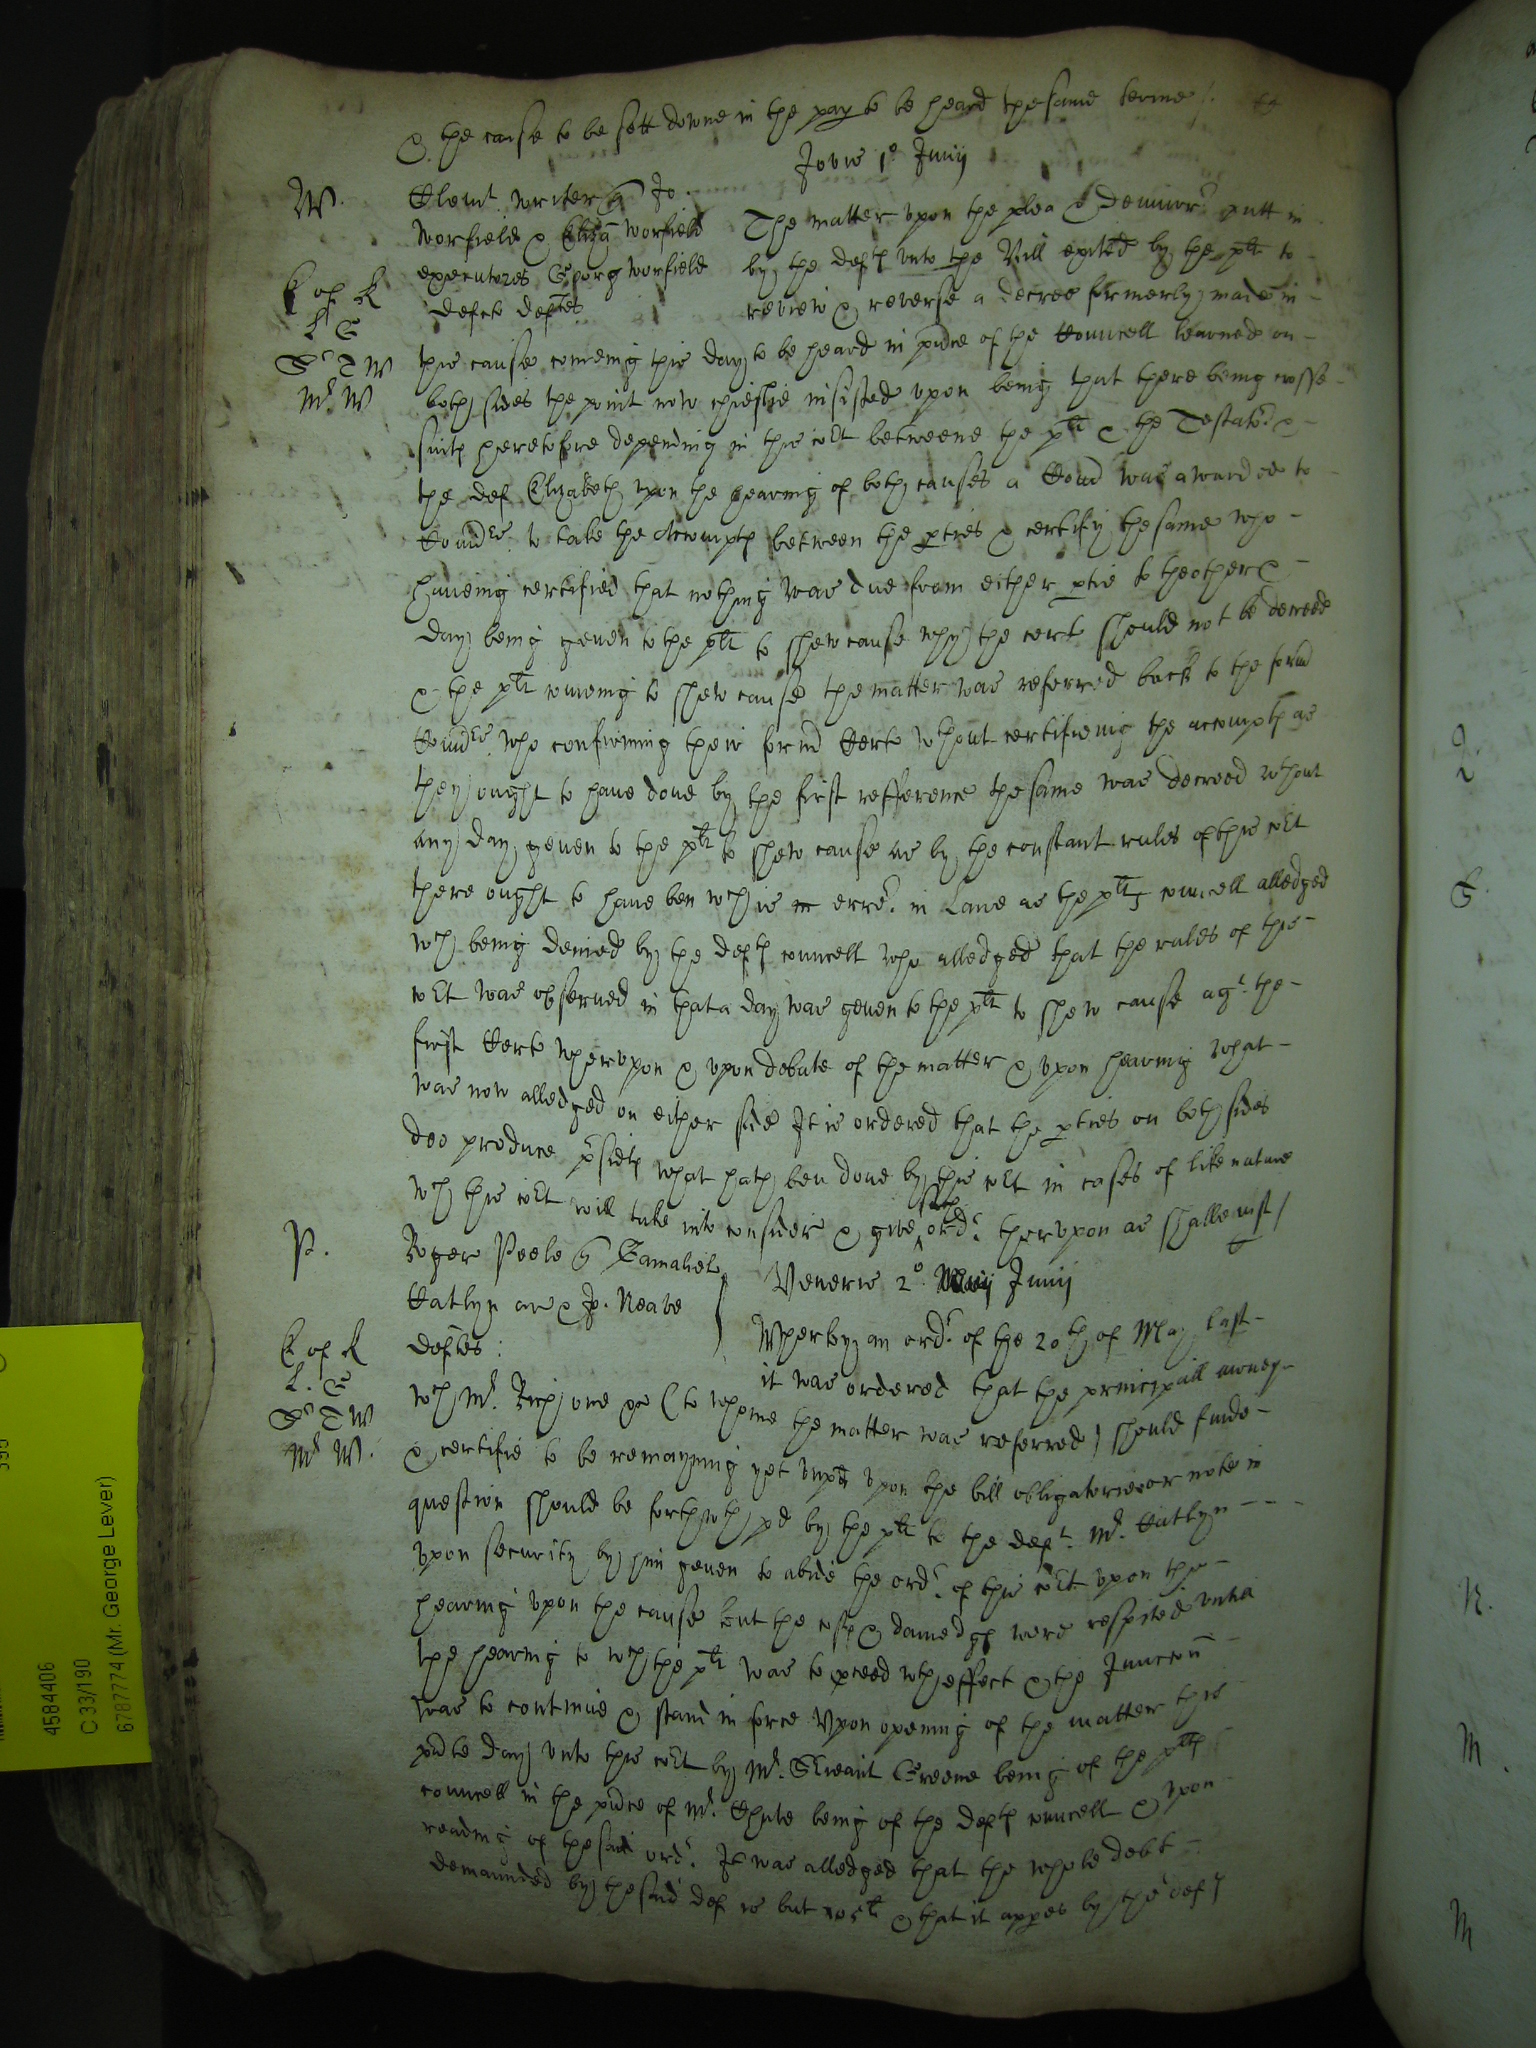 & the cause to be sett downe in the pap to be heard the same terme /.
Jovis 1° Junij
W.
Clemt. Writer q Jo.
Worfield & Eliza Worfield
executores Georg Worfield
defcti deftes
The matter upon the plea & demurr putt in
by the defts unto the Bill exited by the plt to
review & reverse a decree formerly made in
K of R
L G
Sr T W
Mr. W
this cause comeing this day to be heard in pnce of the Councell learned on
both sides the point now chieflie insisted upon being that there being crosse
suits heretofore depending in this cort betweene the plt & the Testator &
the def Elizabeth upon the hearing of both causes a Comd was awarded to
Comrs. to take the Accompts between the pties & certify the same who
haveing certified that nothing was due from either ptie to theother &
day being geven to the plt to shew cause why the certe should not be decreed
& the plt comeing to shew cause the matter was referred back to the formd
Comrs. who confirming their formd Certe wthout certifieing the accompts as
they ought to have done by the first refference the same was decreed wthout
any day geven to the plt to shew cause as by the constant rules of this cort
there ought to have ben wch is erre. in Lawe as the plts councell alledged
wch being denied by the defts councell who alledged that the rules of this
cort was observed in that a day was geven to the plt to shew cause agt. the
first Certe wherupon & upon debate of the matter & upon hearing what
was now alledged on either side It is ordered that the pties on both sides
doo produce psidts what hath ben done by this cort in cases of like nature
wch this cort will take into consider & give such ordr. therupon as shalbe iust /
P.
Roger Peele q Gamaliel
Catlyn ar & Jo. Neave
deftes:
Veneris 2° Maij Junij
Wherby an ordr. of the 20th of May last
it was ordered that the principall money
K of R
L. G
Sr T W
Mr W.
wch Mr. Rich one &c (to whome the matter was referred) should finde
& certifie to be remayning yet unpd upon the bill obligatorie or note in
question should be forthwth pd by the plt to the deft. Mr. Catlyn
upon security by him geven to abide the ordr. of this cort upon the
hearing upon the cause but the costs & damedgs were respited untill
the hearing to wch the plt was to pceed wth effect & the Junccon
was to continue & stand in force Upon opening of the matter this
pnte day unto this cort by Mr. Srieant Greene being of the plts
councell in the pnce of Mr. Chute being of the defts councell & upon
reading of the said ordr. It was alledged that the whole debt
demaunded by the said def is but 105li & that it appes by the defs
4584406
C 33/190
6787774 (Mr. George Lever)